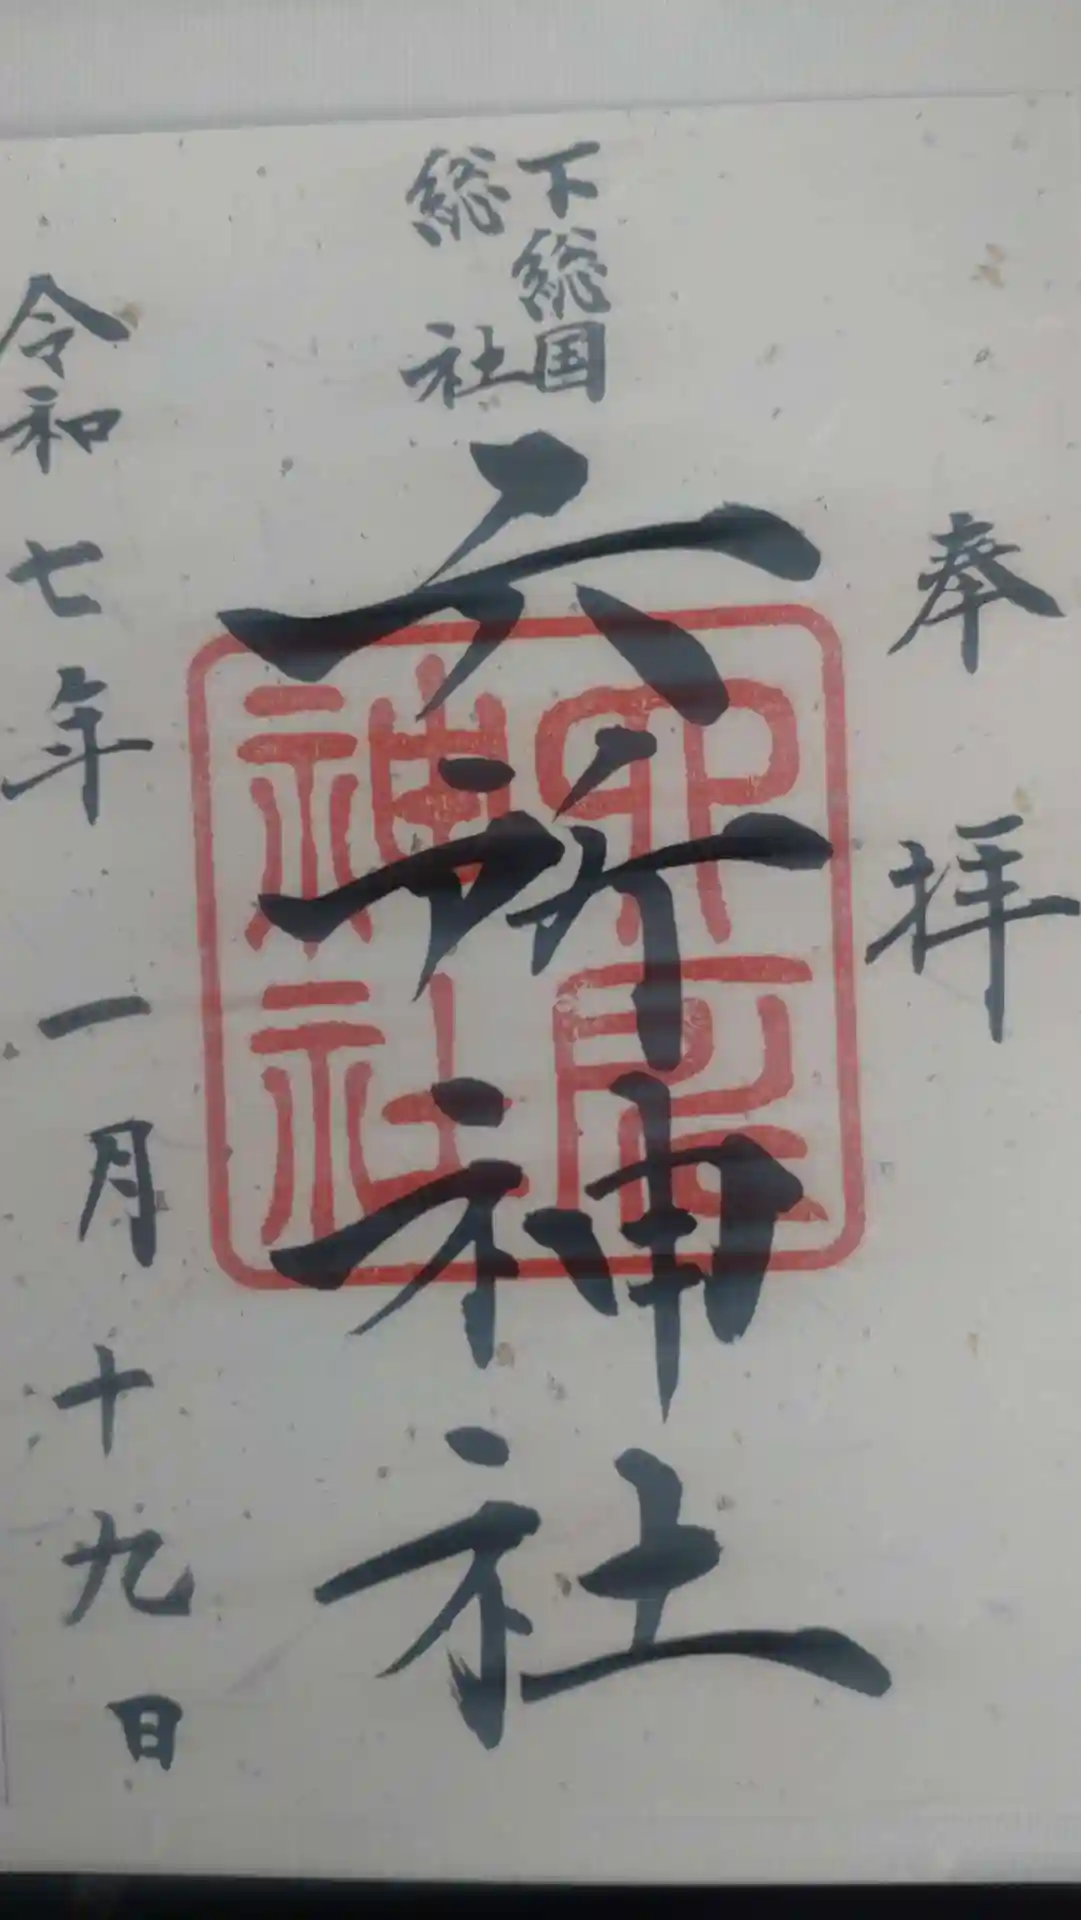 奉拝
下総国
総社
六所神社
六所
神社
令和七年一月十九日